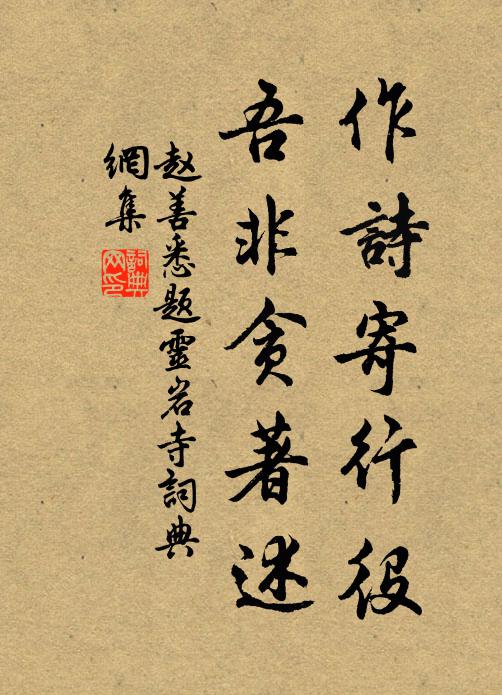 作詩寄行役
吾非貪著述
赵善悉题靈岩寺詞典
網集
詞典
网印